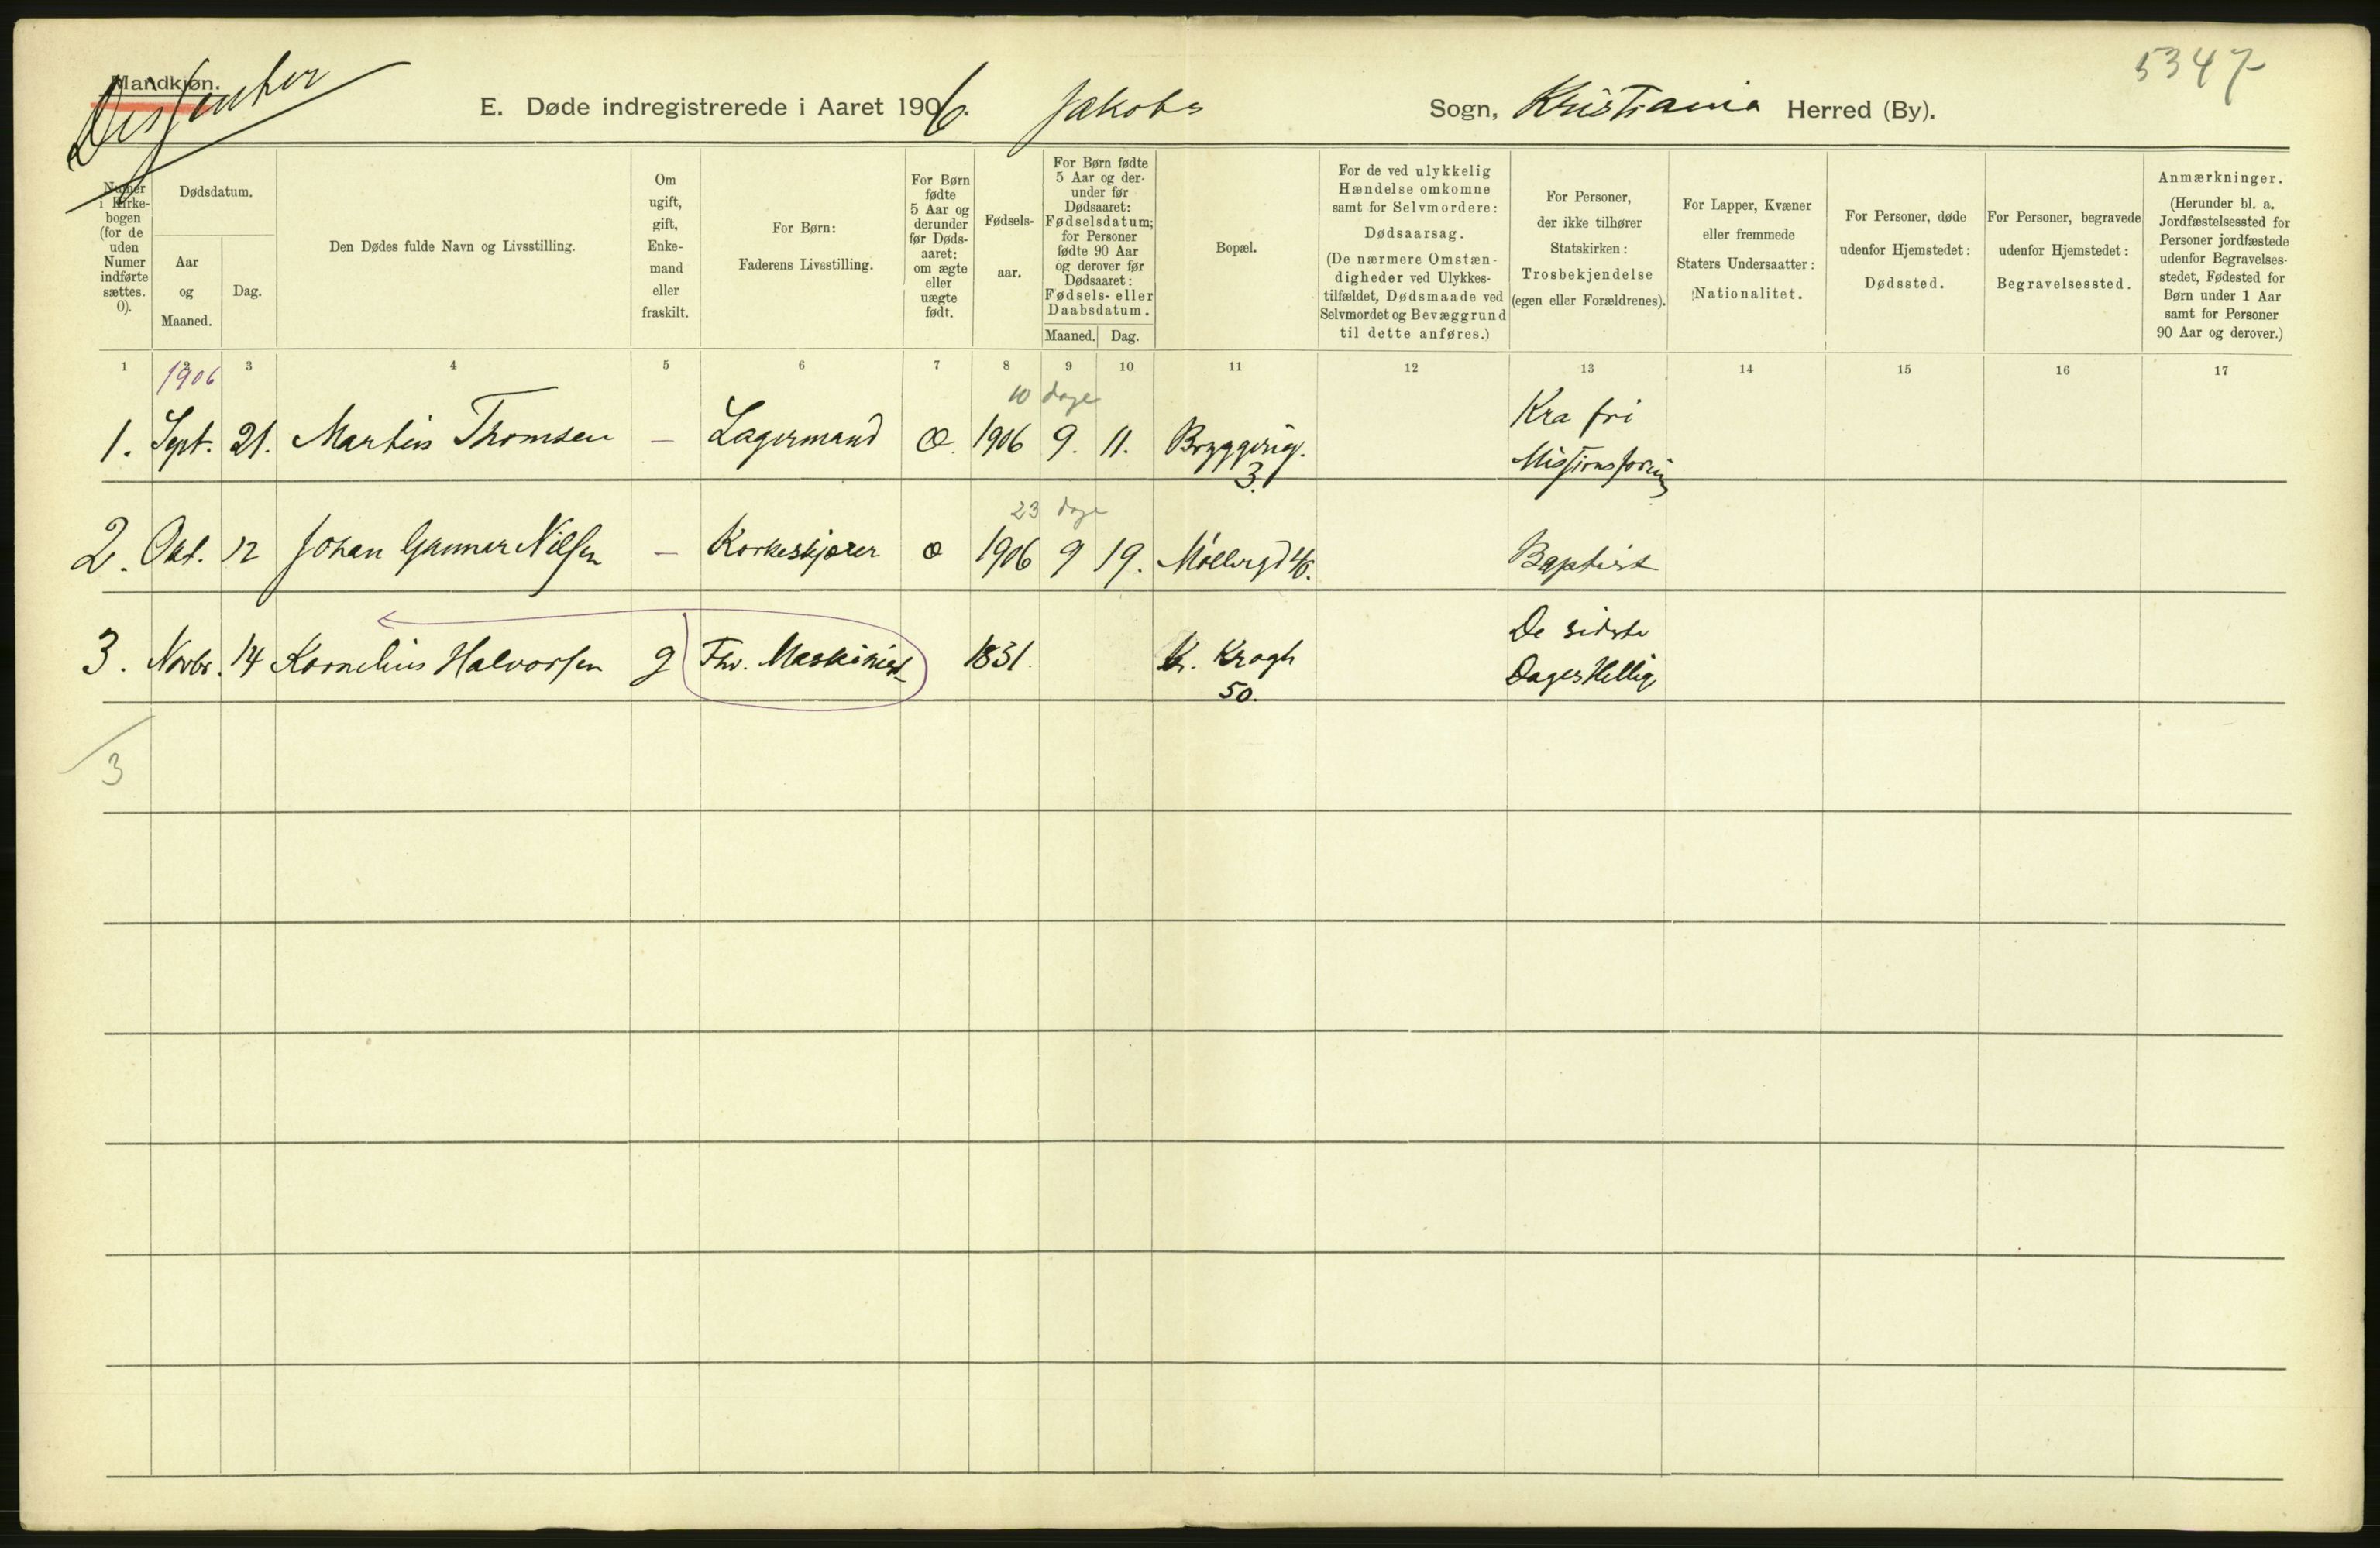 Mandkjøn.
Dissenter
5347
E. Døde indregistrerede i Aaret 1906. Jakobs Sogn, Kristiania Herred (By).
Numer i Kirke-bogen (for de uden Numer indførte sættes. 0).
Dødsdatum.
Aar og Maaned.
Dag.
Den Dødes fulde Navn og Livsstilling.
Om ugift, gift, Enke-mand eller fraskilt.
For Børn: Faderens Livsstilling.
For Børn fødte 5 Aar og derunder før Døds-aaret: om ægte eller uægte født.
Fødsels-aar.
For Børn fødte 5 Aar og der-under før Dødsaaret: Fødselsdatum; for Personer fødte 90 Aar og derover før Dødsaaret: Fødsels- eller Daabsdatum.
Maaned. Dag.
Bopæl.
For de ved ulykkelig Hændelse omkomne samt for Selvmordere: Dødsaarsag. (De nærmere Omstæn-digheder ved Ulykkes-tilfældet, Dødsmaade ved Selvmordet og Bevæggrund til dette anføres.)
For Personer, der ikke tilhører Statskirken: Trosbekjendelse (egen eller Forældrenes).
For Lapper, Kvæner eller fremmede Staters Undersaatter: Nationalitet.
For Personer, døde udenfor Hjemstedet: Dødssted.
For Personer, begravede udenfor Hjemstedet: Begravelsessted.
Anmærkninger. (Herunder bl. a. Jordfæstelsessted for Personer jordfæstede udenfor Begravelses-stedet, Fødested for Børn under 1 Aar samt for Personer 90 Aar og derover.)
1 2 3 4 5 6 7 8 9 10 11 12 13 14 15 16 17
1906
10 dage
1. Sept. 21. Martins Thomsen — Lagermand Æ. 1906 9. 11. Bryggerig. 3. Kra fri Missionsforening
23 dage
2. Okt. 12 Johan Gunnar Nilsen — Korkeskjærer æ 1906 9 19. Møllergd 46. Baptist
3. Novbr. 14 Kornelius Halvorsen g Fhv. Maskinist 1831. Kr. Krogh 50. De sidste Dages Hellige
3